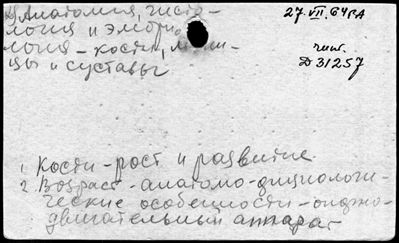 Д Анатомия, гисто-
логия и эмбрио
логия - кости, мыш-
цы и суставы
27.VII.64 РА
чит.
Д 31257
1. Кости - рост и развитие
2. Возраст - анатомо-физиологи-
ческие особенности - опорно-
двигательный аппарат